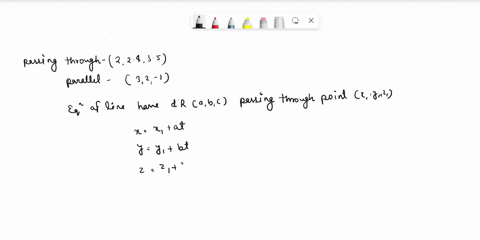 passing through - (2, 2.4, 3.5)
parallel - (3, 2, -1)
Eqⁿ of line have dR (a, b, c) passing through point (x₁, y₁, z₁)
x = x₁ + at
y = y₁ + bt
z = z₁ +